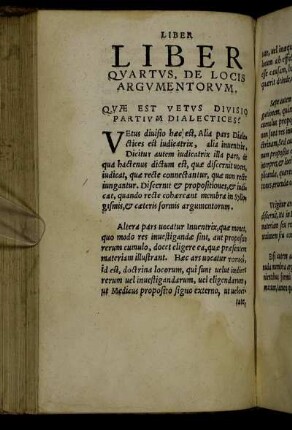 LIBER
LIBER
QVARTVS, DE LOCIS
ARGVMENTORVM,
QVÆ EST VETVS DIVISIO
PARTIVM DIALECTICES?
VEtus diuisio hæc est, Alia pars Diale
ctices est iudicatrix, alia inuentrix,
Dicitur autem indicatrix illa pars, de
qua hactenus dictum est, quæ discernit uoces,
iudicat, quæ recte connectantur, quæ non recte
iungantur. Discernit & propositiones, & iudi
cat, quando recte cohæreant membra in syllo
gismis, & cæteris formis argumentorum.
Altera pars uocatur Inuentrix, quæ monet,
quo modo res inuestigandæ sint, aut proposito
rerum cumulo, docet eligere ea, quæ præsentem
materiam illustrant. Hæc ars uocatur
id est, doctrina locorum, qui sunt uelut indices
rerum uel inuestigandarum, uel eligendarum,
ut Medicus proposito signo externo, ut